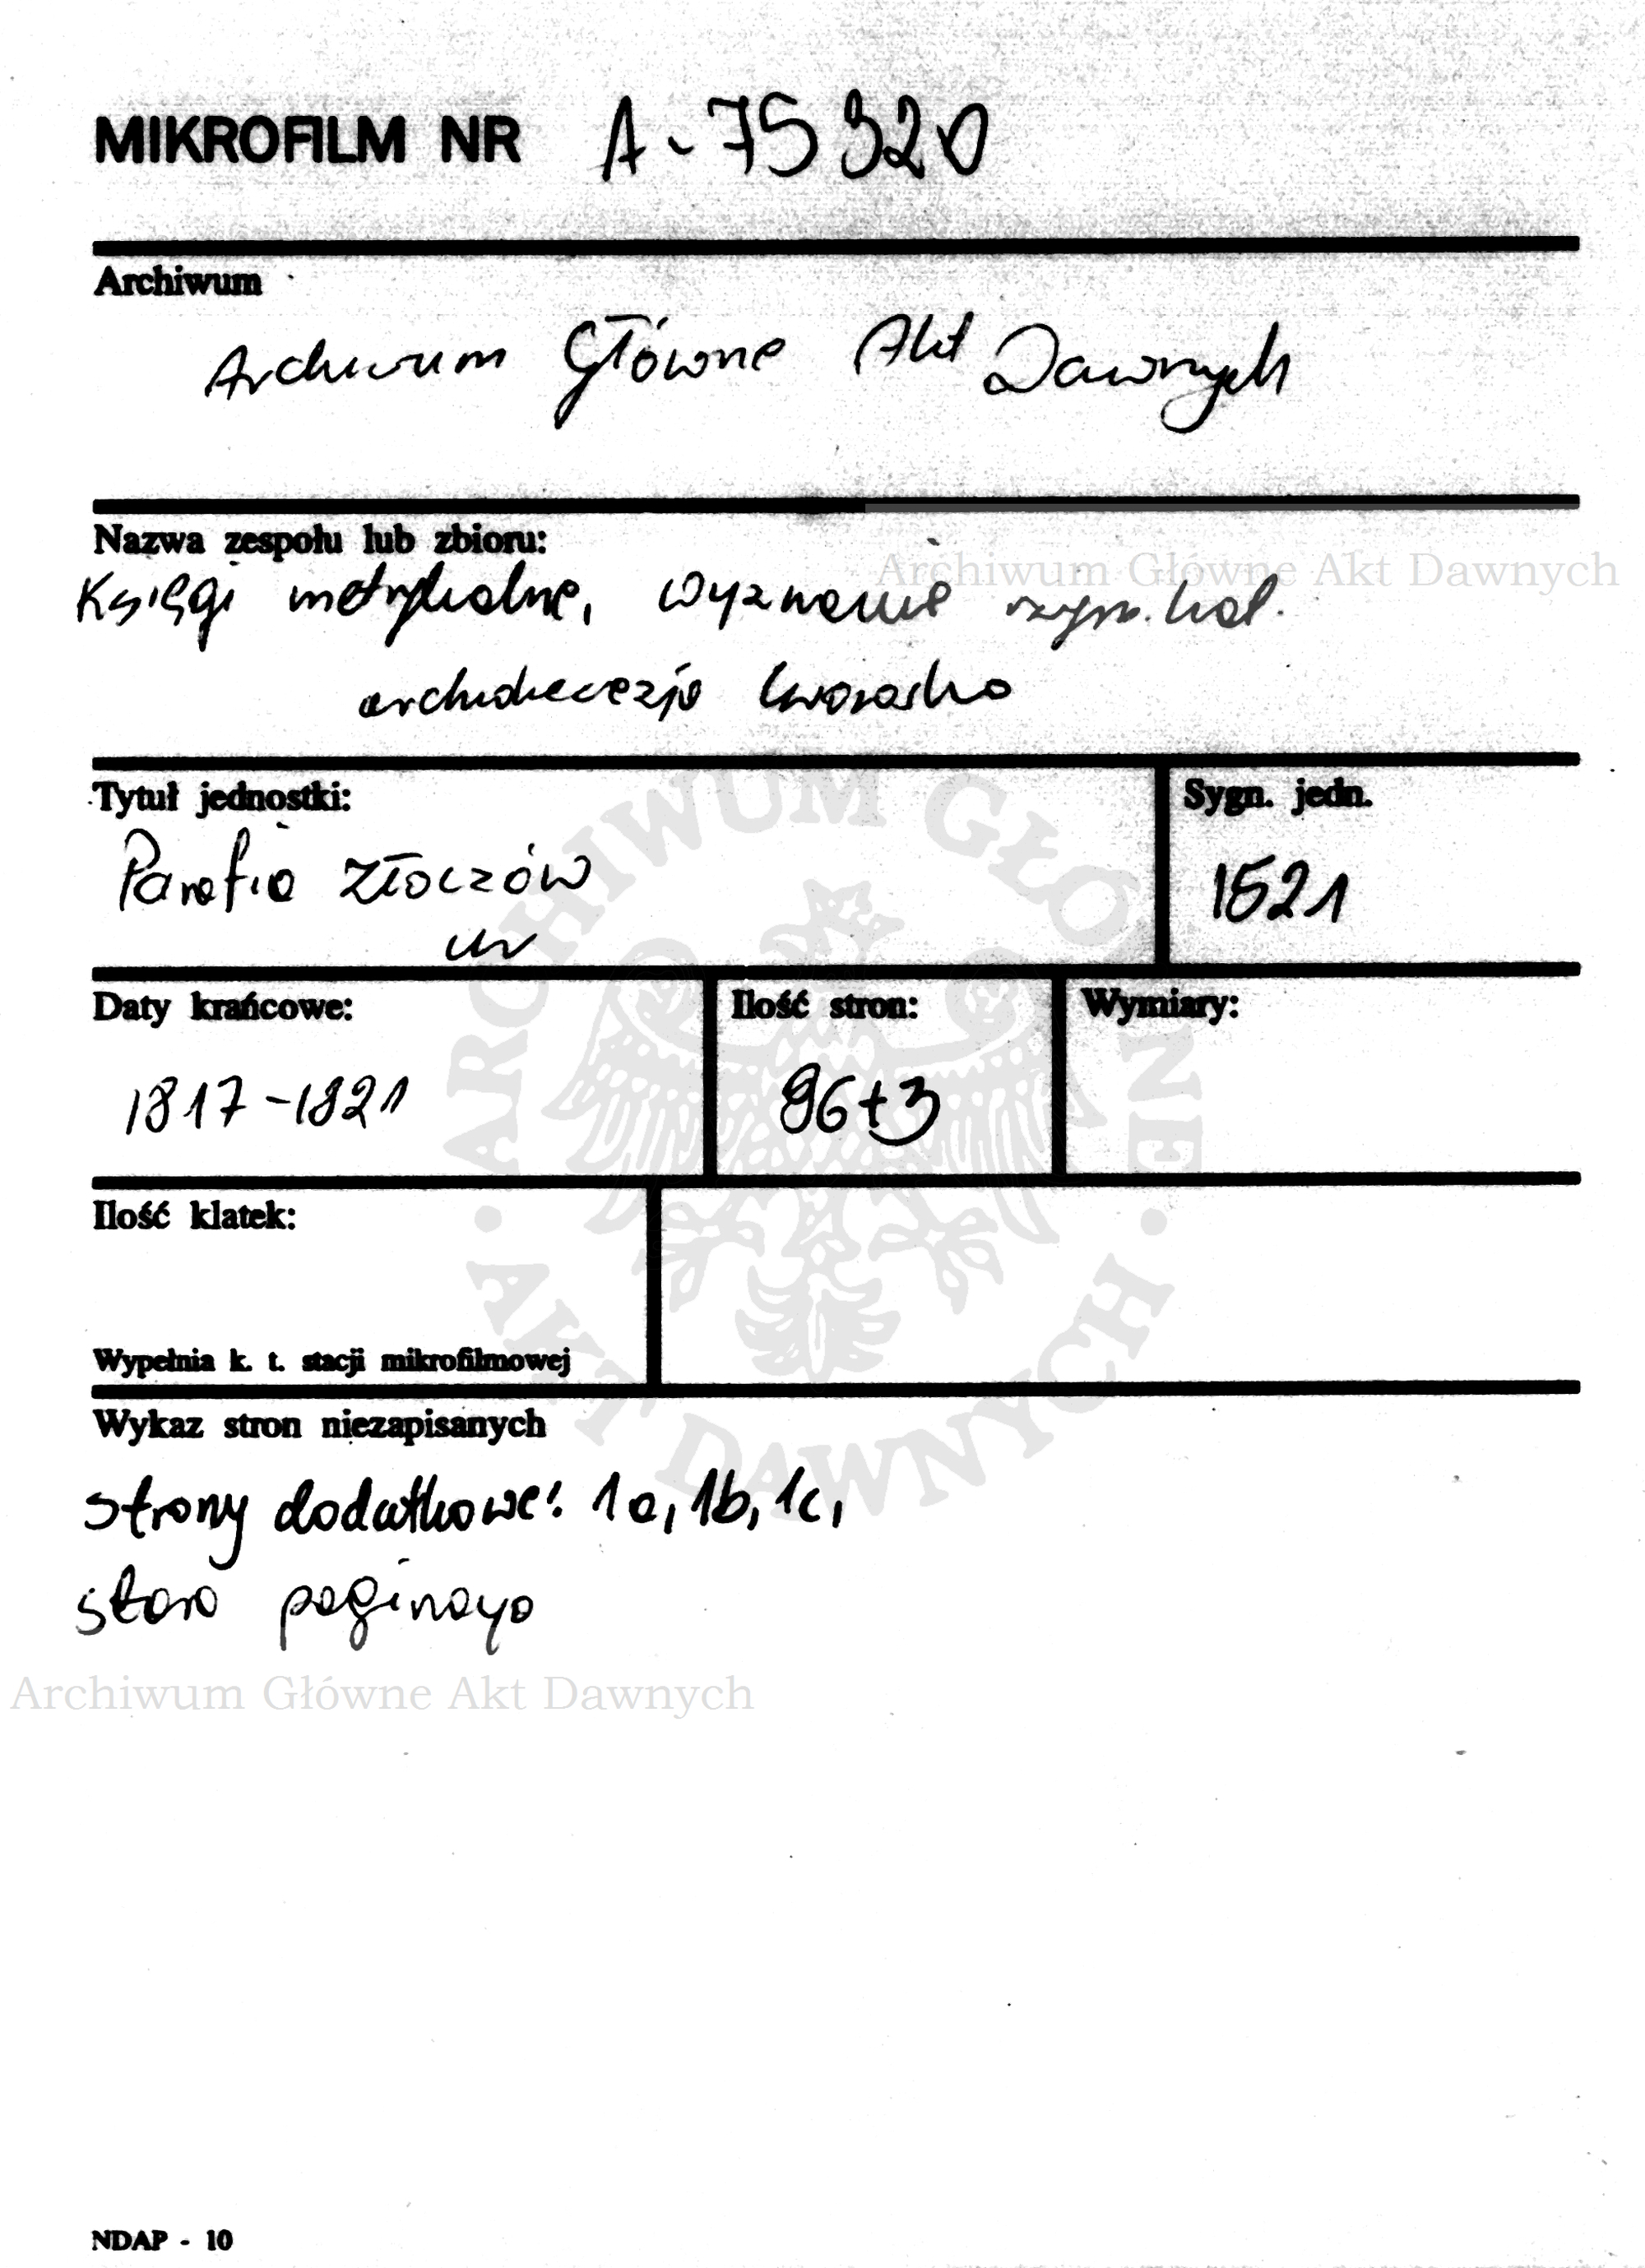 MIKROFILM NR A-75320
Archiwum
Archiwum Główne Akt Dawnych
Nazwa zespołu lub zbioru:
Archiwum Główne Akt Dawnych
Księgi metrykalne, wyznanie rzym. kat.
archidiecezja lwowska
Tytuł jednostki:
Sygn. jedn.
Parafia Złoczów
1521
ur
ARCHIWUM GŁÓWNE AKT DAWNYCH
Daty krańcowe:
Ilość stron:
Wymiary:
1817-1821
96+3
Ilość klatek:
Wypełnia k. t. stacji mikrofilmowej
Wykaz stron niezapisanych
strony dodatkowe: 1a, 1b, 1c,
stara paginacja
Archiwum Główne Akt Dawnych
NDAP - 10